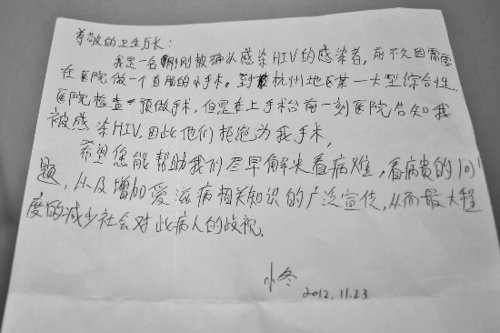 尊敬的卫生厅长：
我是一名刚刚被确认感染HIV的感染者，前不久因需要
在医院做一个直肠的小手术。到杭州地区某一大型综合性
医院检查预做手术，但是在上手术台前一刻医院告知我
被感染HIV，因此他们拒绝为我手术，
希望您能帮助我们尽早解决看病难，看病贵的问
题，以及增加爱滋病相关知识的广泛宣传，从而最大程
度的减少社会对此病人的歧视。
小冬
2012.11.23